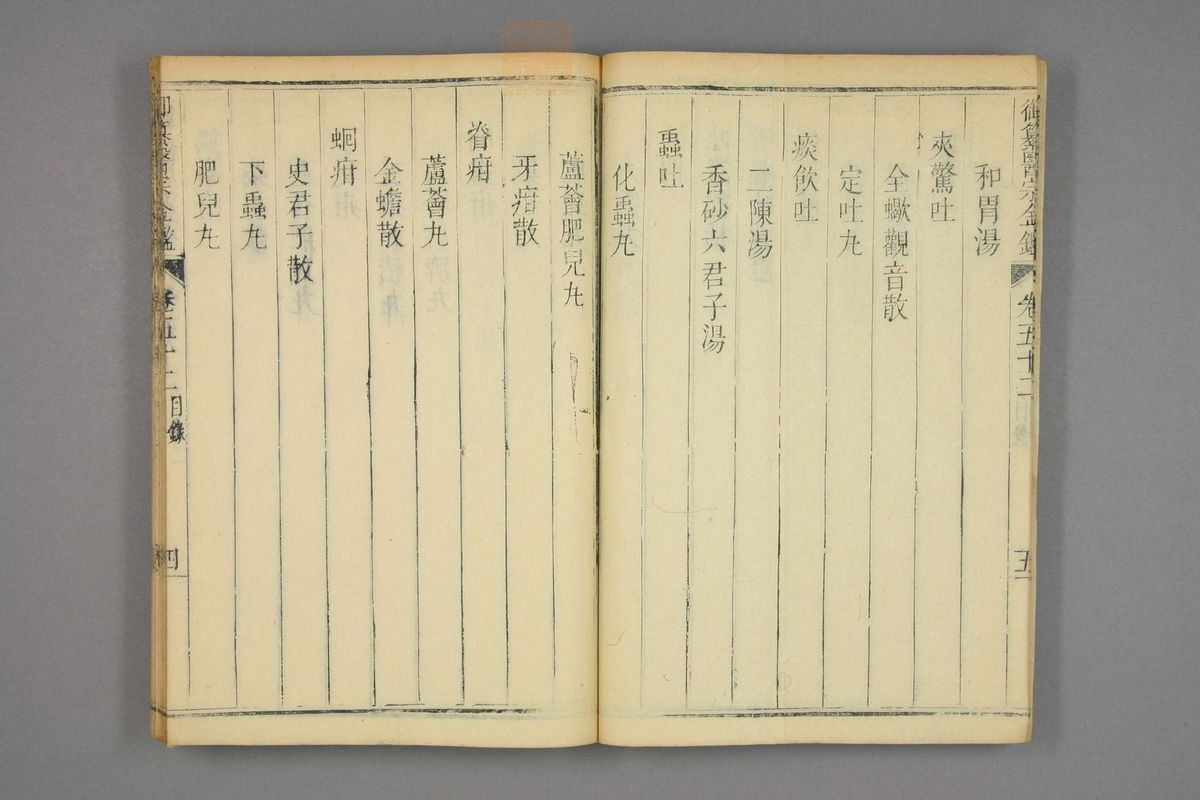 御纂醫宗金鑑 卷五十二 五
和胃湯
夾驚吐
全蠍觀音散
定吐丸
痰飲吐
二陳湯
香砂六君子湯
蟲吐
化蟲丸
蘆薈肥兒丸
牙疳散
脊疳
蘆薈丸
金蟾散
蛔疳
史君子散
下蟲丸
肥兒丸
御纂醫宗金鑑 卷五十二 目錄 四